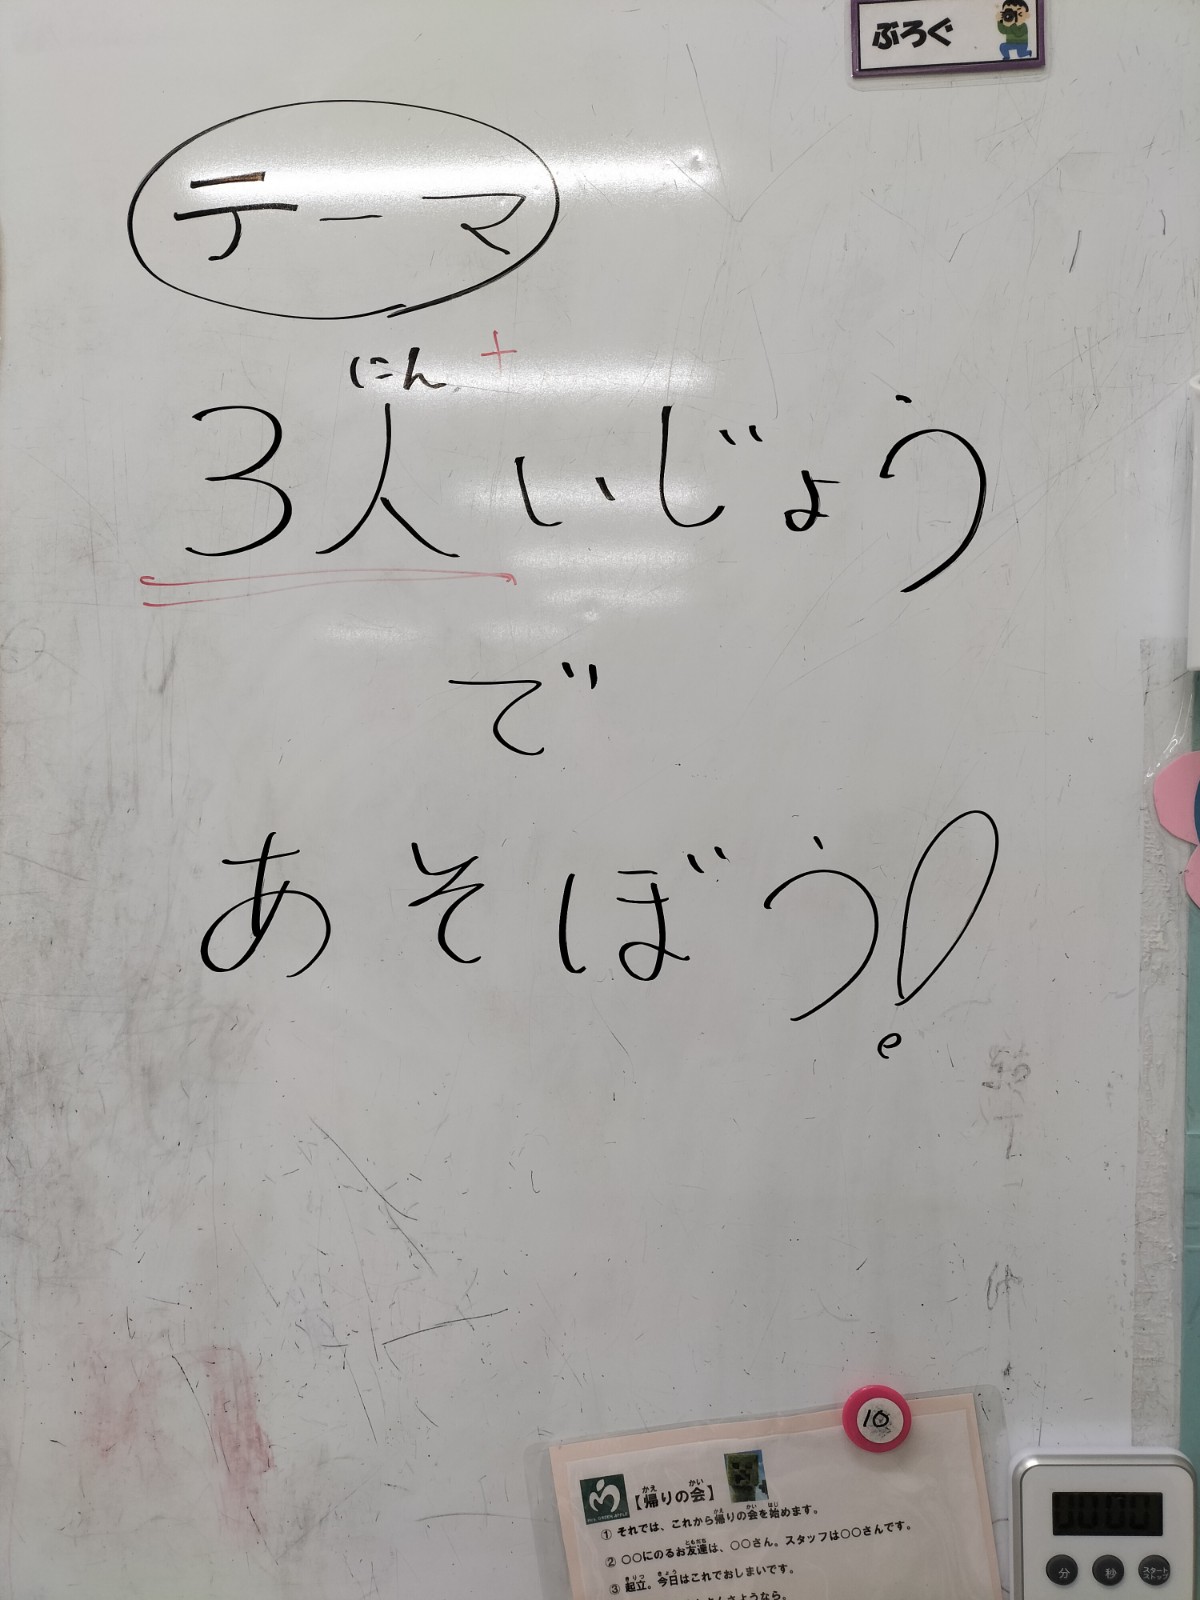 ぶろぐ
テーマ
にん
+
3人いじょう
で
あそぼう!
10
【帰りの会】
かえ かい
① それでは、これから帰りの会を始めます。
かえ かい はじ
② ○○にのるお友達は、○○さん。スタッフは○○さんです。
ともだち
③ 起立。今日はこれでおしまいです。
きりつ きょう
さようなら。
00:00
分 秒 スタート
ストップ